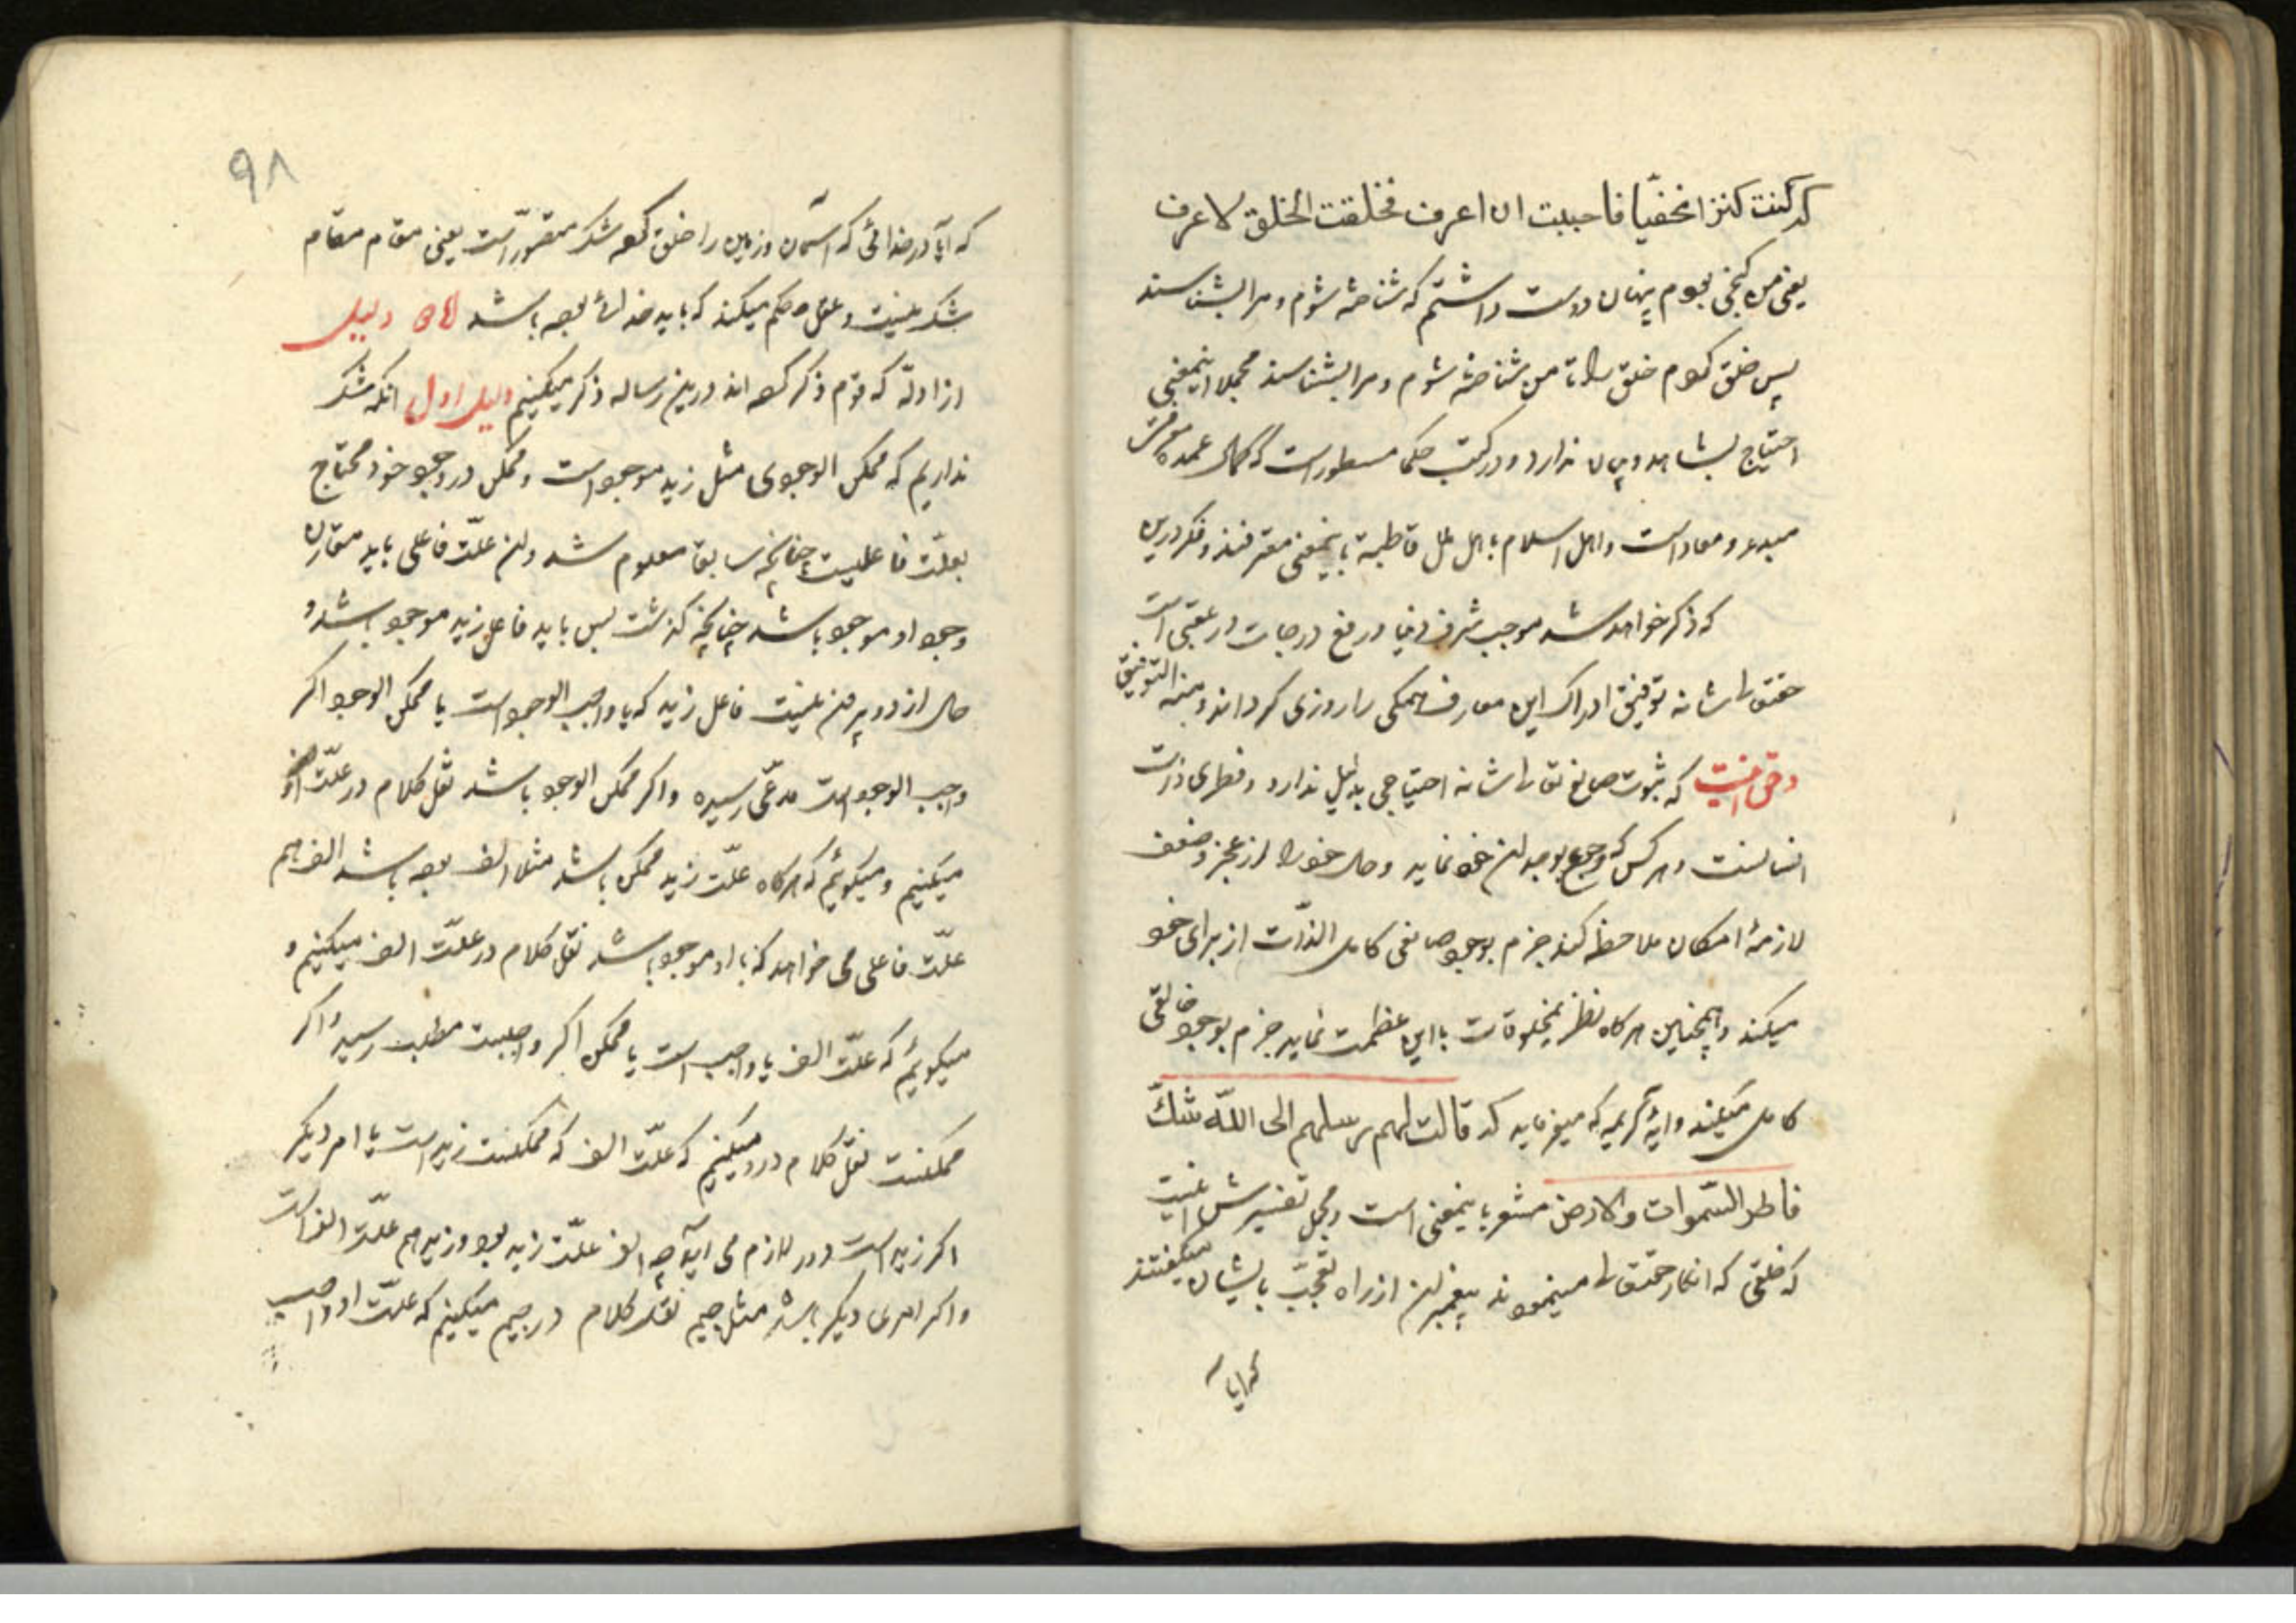 که کنت کنزا مخفیّا فاحببت ان اعرف فخلقت الخلق لاعرف
یعنی من گنجی بودم پنهان دوست داشتم که شناخته شوم و مرا بشناسند
پس خلق کردم خلق را تا من شناخته شوم و مرا بشناسند مجملا اینمعنی
احتیاج بشاهد و بیان ندارد و در کتب حکما مسطور است که کمال عمده معرفت
مبدء و معاد است و اهل اسلام با اهل ملل قاطبة باینمعنی معترفند و فکر درین
که ذکر خواهد شد موجب شرف دنیا و رفع درجات در عقبی است
حقتعالی شانه توفیق ادراک این معارف همکی را روزی کرداند و منه التوفیق
و حق اینست که ثبوت صانع تعالی شانه احتیاجی بدلیل ندارد و فطری ذات
انسانست و هر کس که رجوع بوجدان خود نماید و حال خود را از عجز و ضعف
لازمهٔ امکان ملاحظه کند جزم بوجود صانعی کامل الذّات از برای خود
میکند و همچنین هرکاه نظر بمخلوقات با این عظمت نماید جزم بوجود خالقی
کامل میکند و ایهٔ کریمه که میفرماید که قالت لهم رسلهم الی اللّه شکّ
فاطر السّموات والارض مشعر باینمعنی است و مجمل تفسیرش اینست
که خلقی که انکار حقتعالی مینمودند پیغمبران از راه تعجّب بایشان میکفتند
که ایا
۹۸
که آیا در خدائی که آسمان و زمین را خلق کرده شک متصوّر است یعنی مقام مقام
شک نیست و عقل حکم میکند که باید خدائی بوده باشد دلیل
از ادلّه که قوم ذکر کرده اند درین رساله ذکر میکنیم دلیل اول انکه شک
نداریم که ممکن الوجودی مثل زید موجود است و ممکن در وجود خود محتاج
بعلّت فاعلیست چنانچه سابق معلوم شد و این علّت فاعلی باید مقارن
وجود او موجود باشد چنانچه کذشت پس باید فاعل زید موجود باشد و
حال از دو بیرون نیست فاعل زید که یا واجب الوجود است یا ممکن الوجود اکر
واجب الوجود است مدعّی رسیده و اکر ممکن الوجود باشد نقل کلام در علّت او
میکنیم و میکوئیم که هرکاه علّت زید ممکن باشد مثلا الف بوده باشد الف هم
علّت فاعلی می خواهد که با او موجود باشد نقل کلام در علّت الف میکنیم و
میکوئیم که علّت الف یا واجب است یا ممکن اکر واجبست مطلب رسید و اکر
ممکنست نقل کلام در او میکنیم که علّت الف که ممکنست زید است یا امر دیکر
اکر زید است دور لازم می آید چه الف علّت زید بود و زید هم علّت الف است
و اکر امری دیکر باشد مثل جیم نقل کلام در جیم میکنیم که علّت او واجب